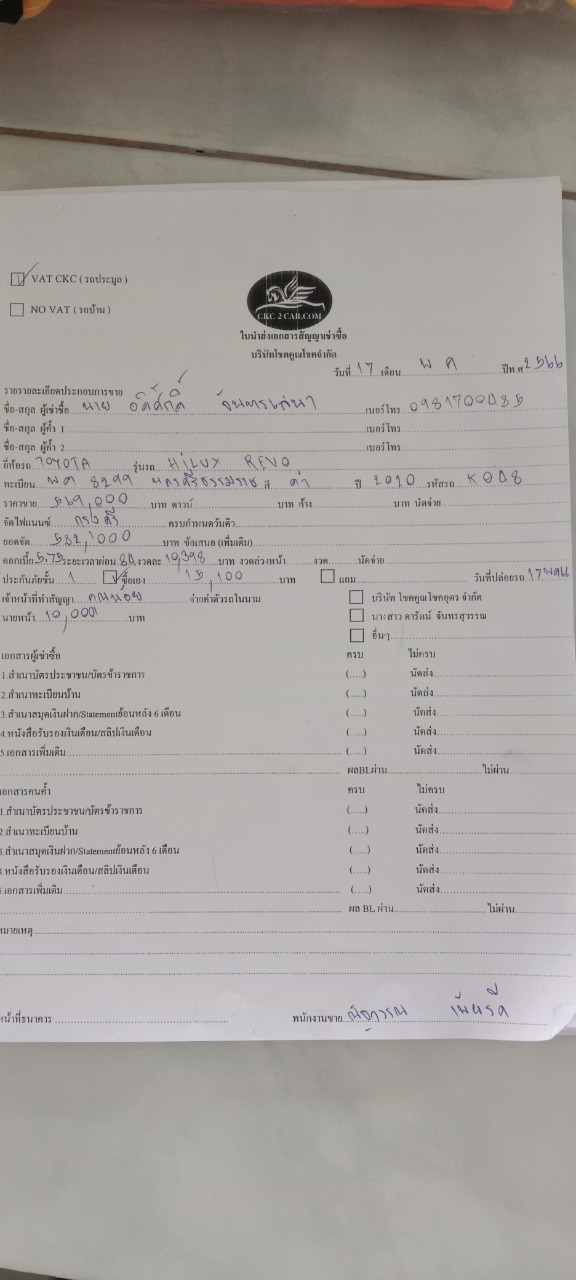 VAT CKC ( รถประมูล )
NO VAT ( รถบ้าน )
CKC 2 CAR.COM
ใบนำส่งเอกสารสัญญาเช่าซื้อ
บริษัทโชคคูณโชคจำกัด
วันที่ 17 เดือน พ ค ปีพ.ศ 2566
รายรายละเอียดประกอบการขาย
ชื่อ-สกุล ผู้เช่าซื้อ นาย อดิศักดิ์ เบอร์โทร
ชื่อ-สกุล ผู้ค้ำ 1 เบอร์โทร
ชื่อ-สกุล ผู้ค้ำ 2 เบอร์โทร
ยี่ห้อรถ TOYOTA รุ่นรถ HILUX REVO
ทะเบียน 8299 นครศรีธรรมราช สี ดำ ปี 2020 รหัสรถ
ราคาขาย 569,000 บาท ดาวน์ บาท ค้าง บาท นัดจ่าย
จัดไฟแนนซ์ กรุงศรี ครบกำหนดวันดิว
ยอดจัด 582,000 บาท ข้อเสนอ (เพิ่มเติม)
ดอกเบี้ย 5.75 ระยะเวลาผ่อน 84 งวดละ 10,398 บาท งวดล่วงหน้า งวด นัดจ่าย
ประกันภัยชั้น 1 ซื้อเอง 15,100 บาท แถม วันที่ปล่อยรถ
เจ้าหน้าที่ทำสัญญา คุณหน่อย จ่ายค่าตัวรถในนาม บริษัท โชคคูณโชคอุดร จำกัด
นายหน้า บาท นางสาว ดารัตน์ จันทรสุวรรณ
อื่นๆ
เอกสารผู้เช่าซื้อ ครบ ไม่ครบ
1.สำเนาบัตรประชาชน/บัตรข้าราชการ (.....) นัดส่ง
2.สำเนาทะเบียนบ้าน (.....) นัดส่ง
3.สำเนาสมุดเงินฝาก/Statementย้อนหลัง 6 เดือน (.....) นัดส่ง
4.หนังสือรับรองเงินเดือน/สลิปเงินเดือน (.....) นัดส่ง
5.เอกสารเพิ่มเติม (.....) นัดส่ง
ผลBLผ่าน ไม่ผ่าน
เอกสารคนค้ำ ครบ ไม่ครบ
1.สำเนาบัตรประชาชน/บัตรข้าราชการ (.....) นัดส่ง
2.สำเนาทะเบียนบ้าน (.....) นัดส่ง
3.สำเนาสมุดเงินฝาก/Statementย้อนหลัง 6 เดือน (.....) นัดส่ง
หนังสือรับรองเงินเดือน/สลิปเงินเดือน (.....) นัดส่ง
เอกสารเพิ่มเติม (.....) นัดส่ง
ผล BL ผ่าน ไม่ผ่าน
หมายเหตุ
หน้าที่ธนาคาร พนักงานขาย